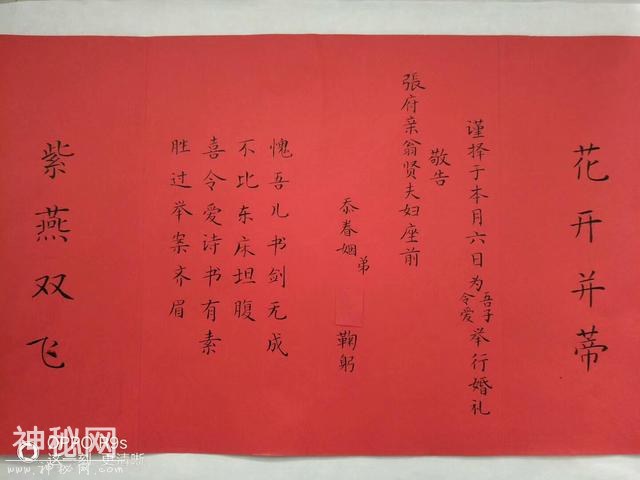 花开并蒂
谨择于本月六日为吾子令爱举行婚礼
敬告
張府亲翁贤夫妇座前
忝眷姻弟 鞠躬
愧吾儿书剑无成
不比东床坦腹
喜令爱诗书有素
胜过举案齐眉
紫燕双飞
神秘网
OPPO R9s
这一刻 更清晰
www.神秘网.com